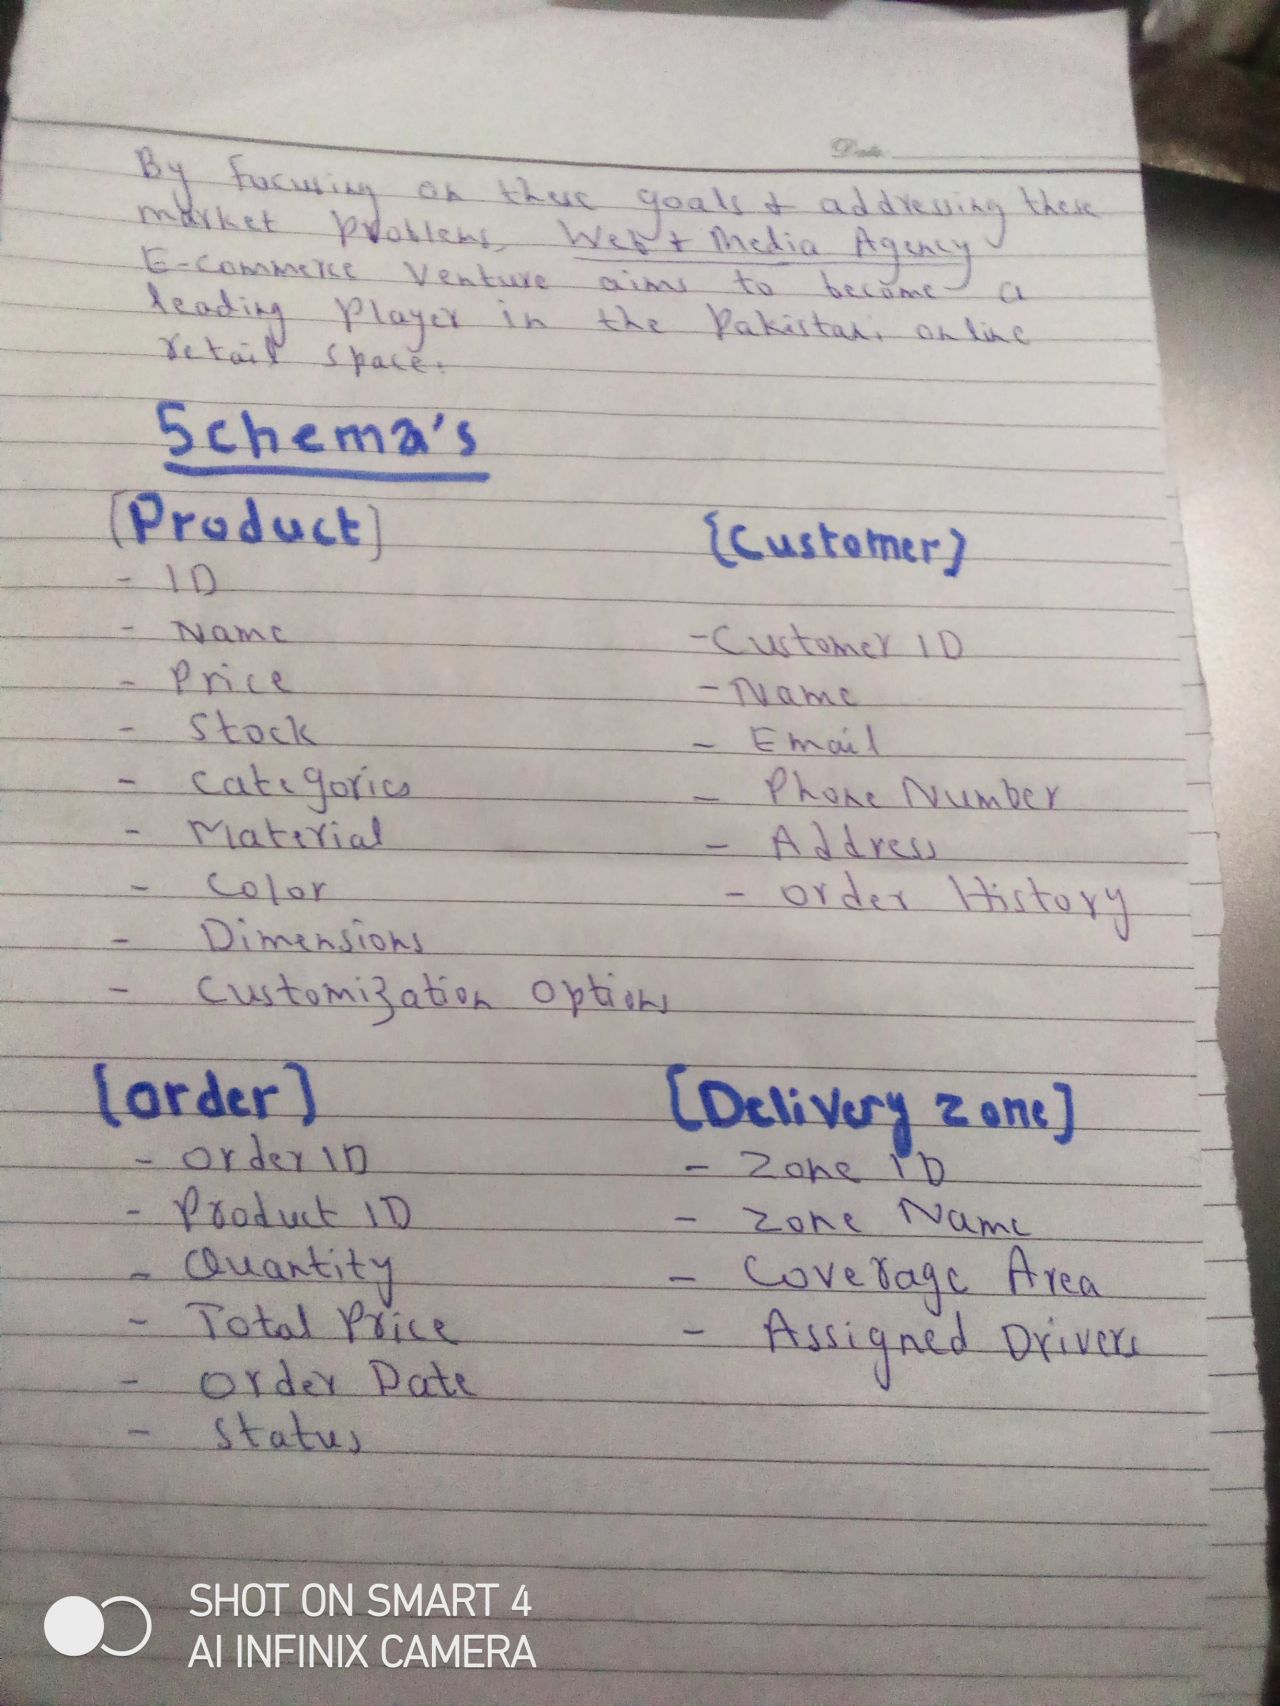 Date:
By Focusing on these goals & addressing these
market problems, Web + Media Agency
E-commerce Venture aims to become a
leading Player in the Pakistani online
retail space.
Schema's
[Product]
- ID
- Name
- Price
- Stock
- Categories
- Material
- Color
- Dimensions
- Customization Options
{Customer}
- Customer ID
- Name
- Email
- Phone Number
- Address
- Order History
[Order]
- Order ID
- Product ID
- Quantity
- Total Price
- Order Date
- Status
[Delivery Zone]
- Zone ID
- Zone Name
- Coverage Area
- Assigned Drivers
SHOT ON SMART 4
AI INFINIX CAMERA